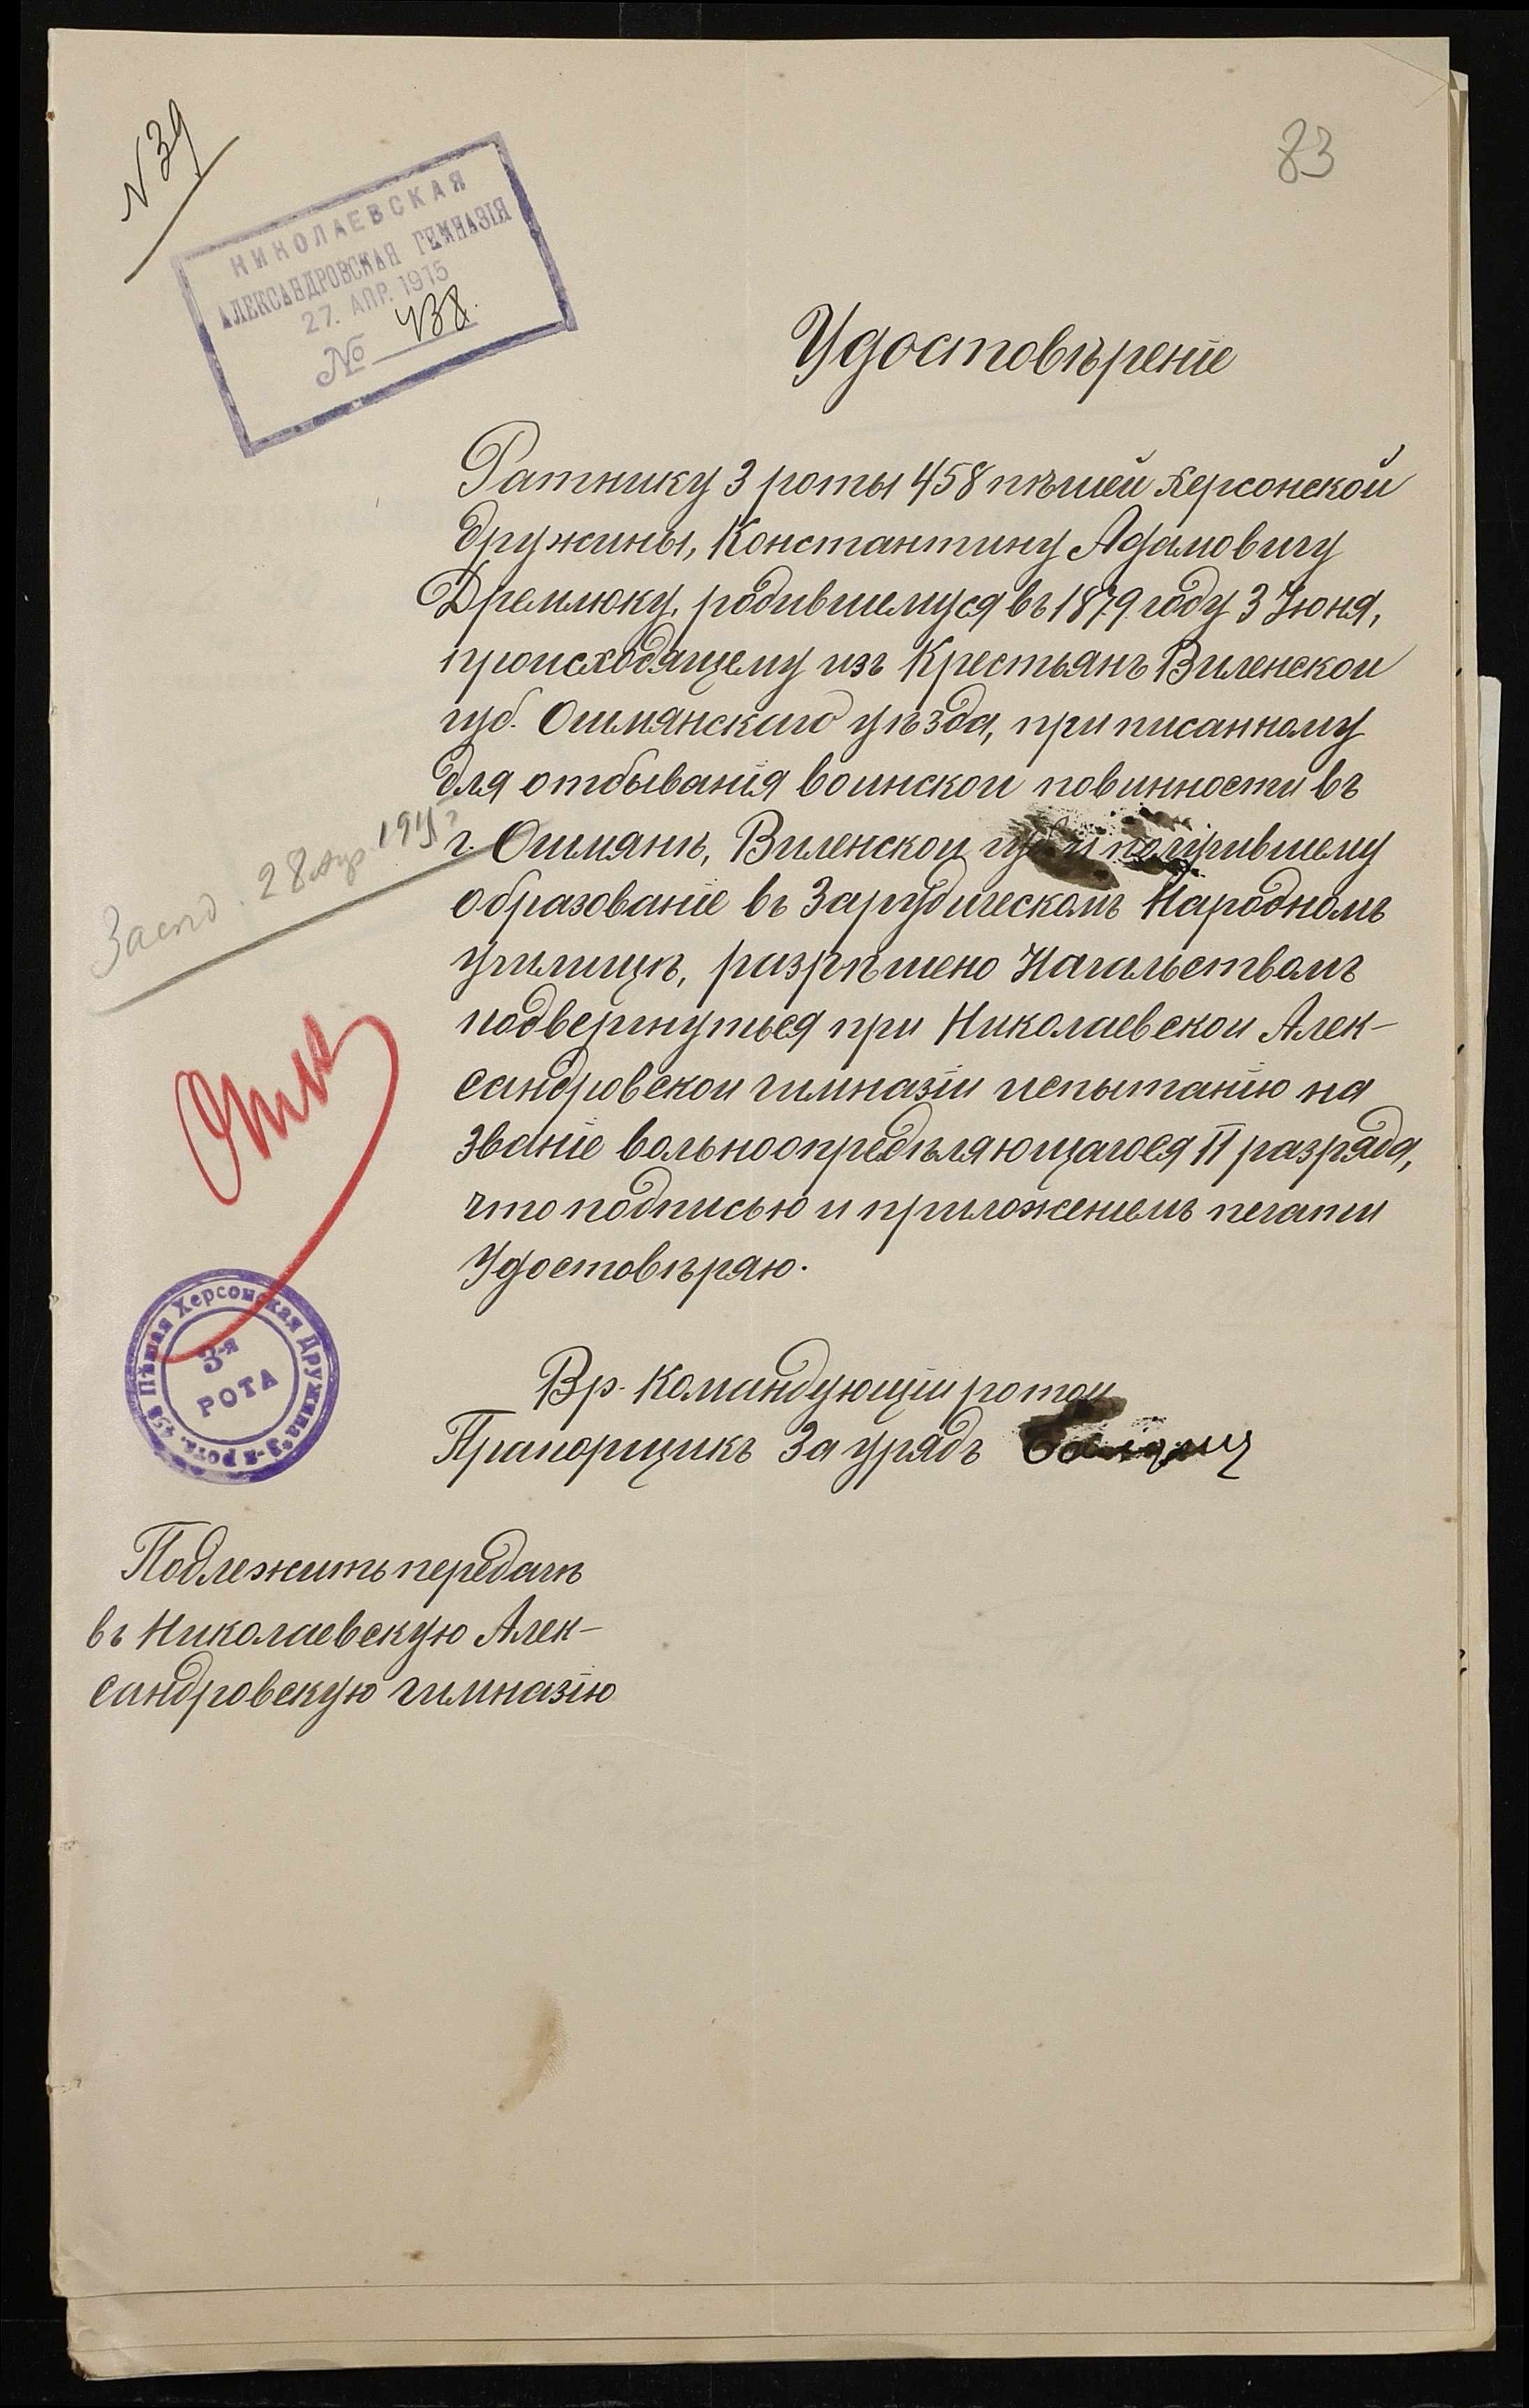 N 39
83
НИКОЛАЕВСКАЯ
АЛЕКСАНДРОВСКАЯ ГИМНАЗІЯ
27. АПР. 1915
№ 438.
Удостовѣреніе
Ратнику 3 роты 458 пѣшей Херсонской
дружины, Константину Адамовичу
Дремлюку, родившемуся въ 1879 году 3 Іюня,
происходящему изъ Крестьянъ Виленской
губ. Ошмянскаго уѣзда, приписанному
для отбыванія воинской повинности въ
г. Ошмянѣ, Виленской губ. и получившему
образованіе въ Зарудическомъ Народномъ
училищѣ, разрѣшено Начальствомъ
подвергнуться при Николаевской Алек-
сандровской гимназіи испытанію на
званіе вольноопредѣляющагося II разряда,
что подписью и приложеніемъ печати
Удостовѣряю.
28 Апр. 1915
458 Пѣшая Херсонская Дружина 3-я рота
3-я
РОТА
Вр. Командующій ротой
Прапорщикъ Заурядъ
Подлежитъ передачѣ
въ Николаевскую Алек-
сандровскую гимназію